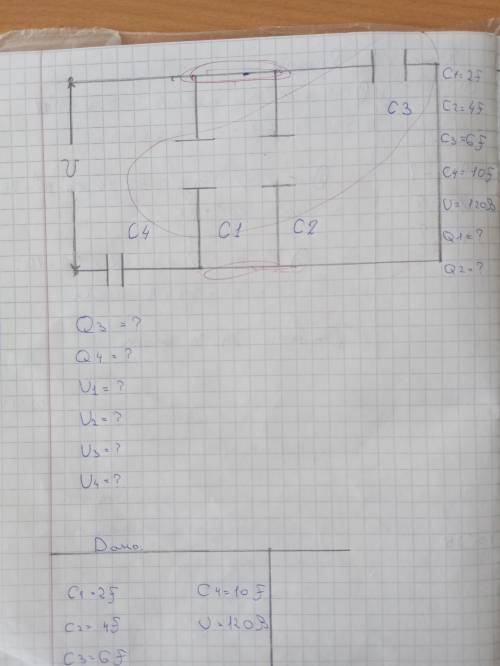 C3
C1=2F
C2=4F
C3=6F
C4=10F
U=120В
Q1=?
Q2=?
U
C4 C1 C2
Q3=?
Q4=?
U1=?
U2=?
U3=?
U4=?
Дано:
C1=2F C4=10F
C2=4F U=120В
C3=6F